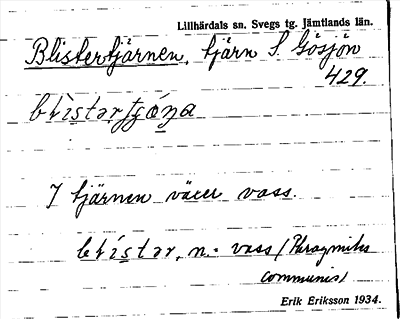 Lillhärdals sn. Svegs tg. Jämtlands län.
Blistertjärnen, tjärn S. Gösjön
429.
I tjärnen växer vass.
n.: vass (Phragmites
communis)
Erik Eriksson 1934.